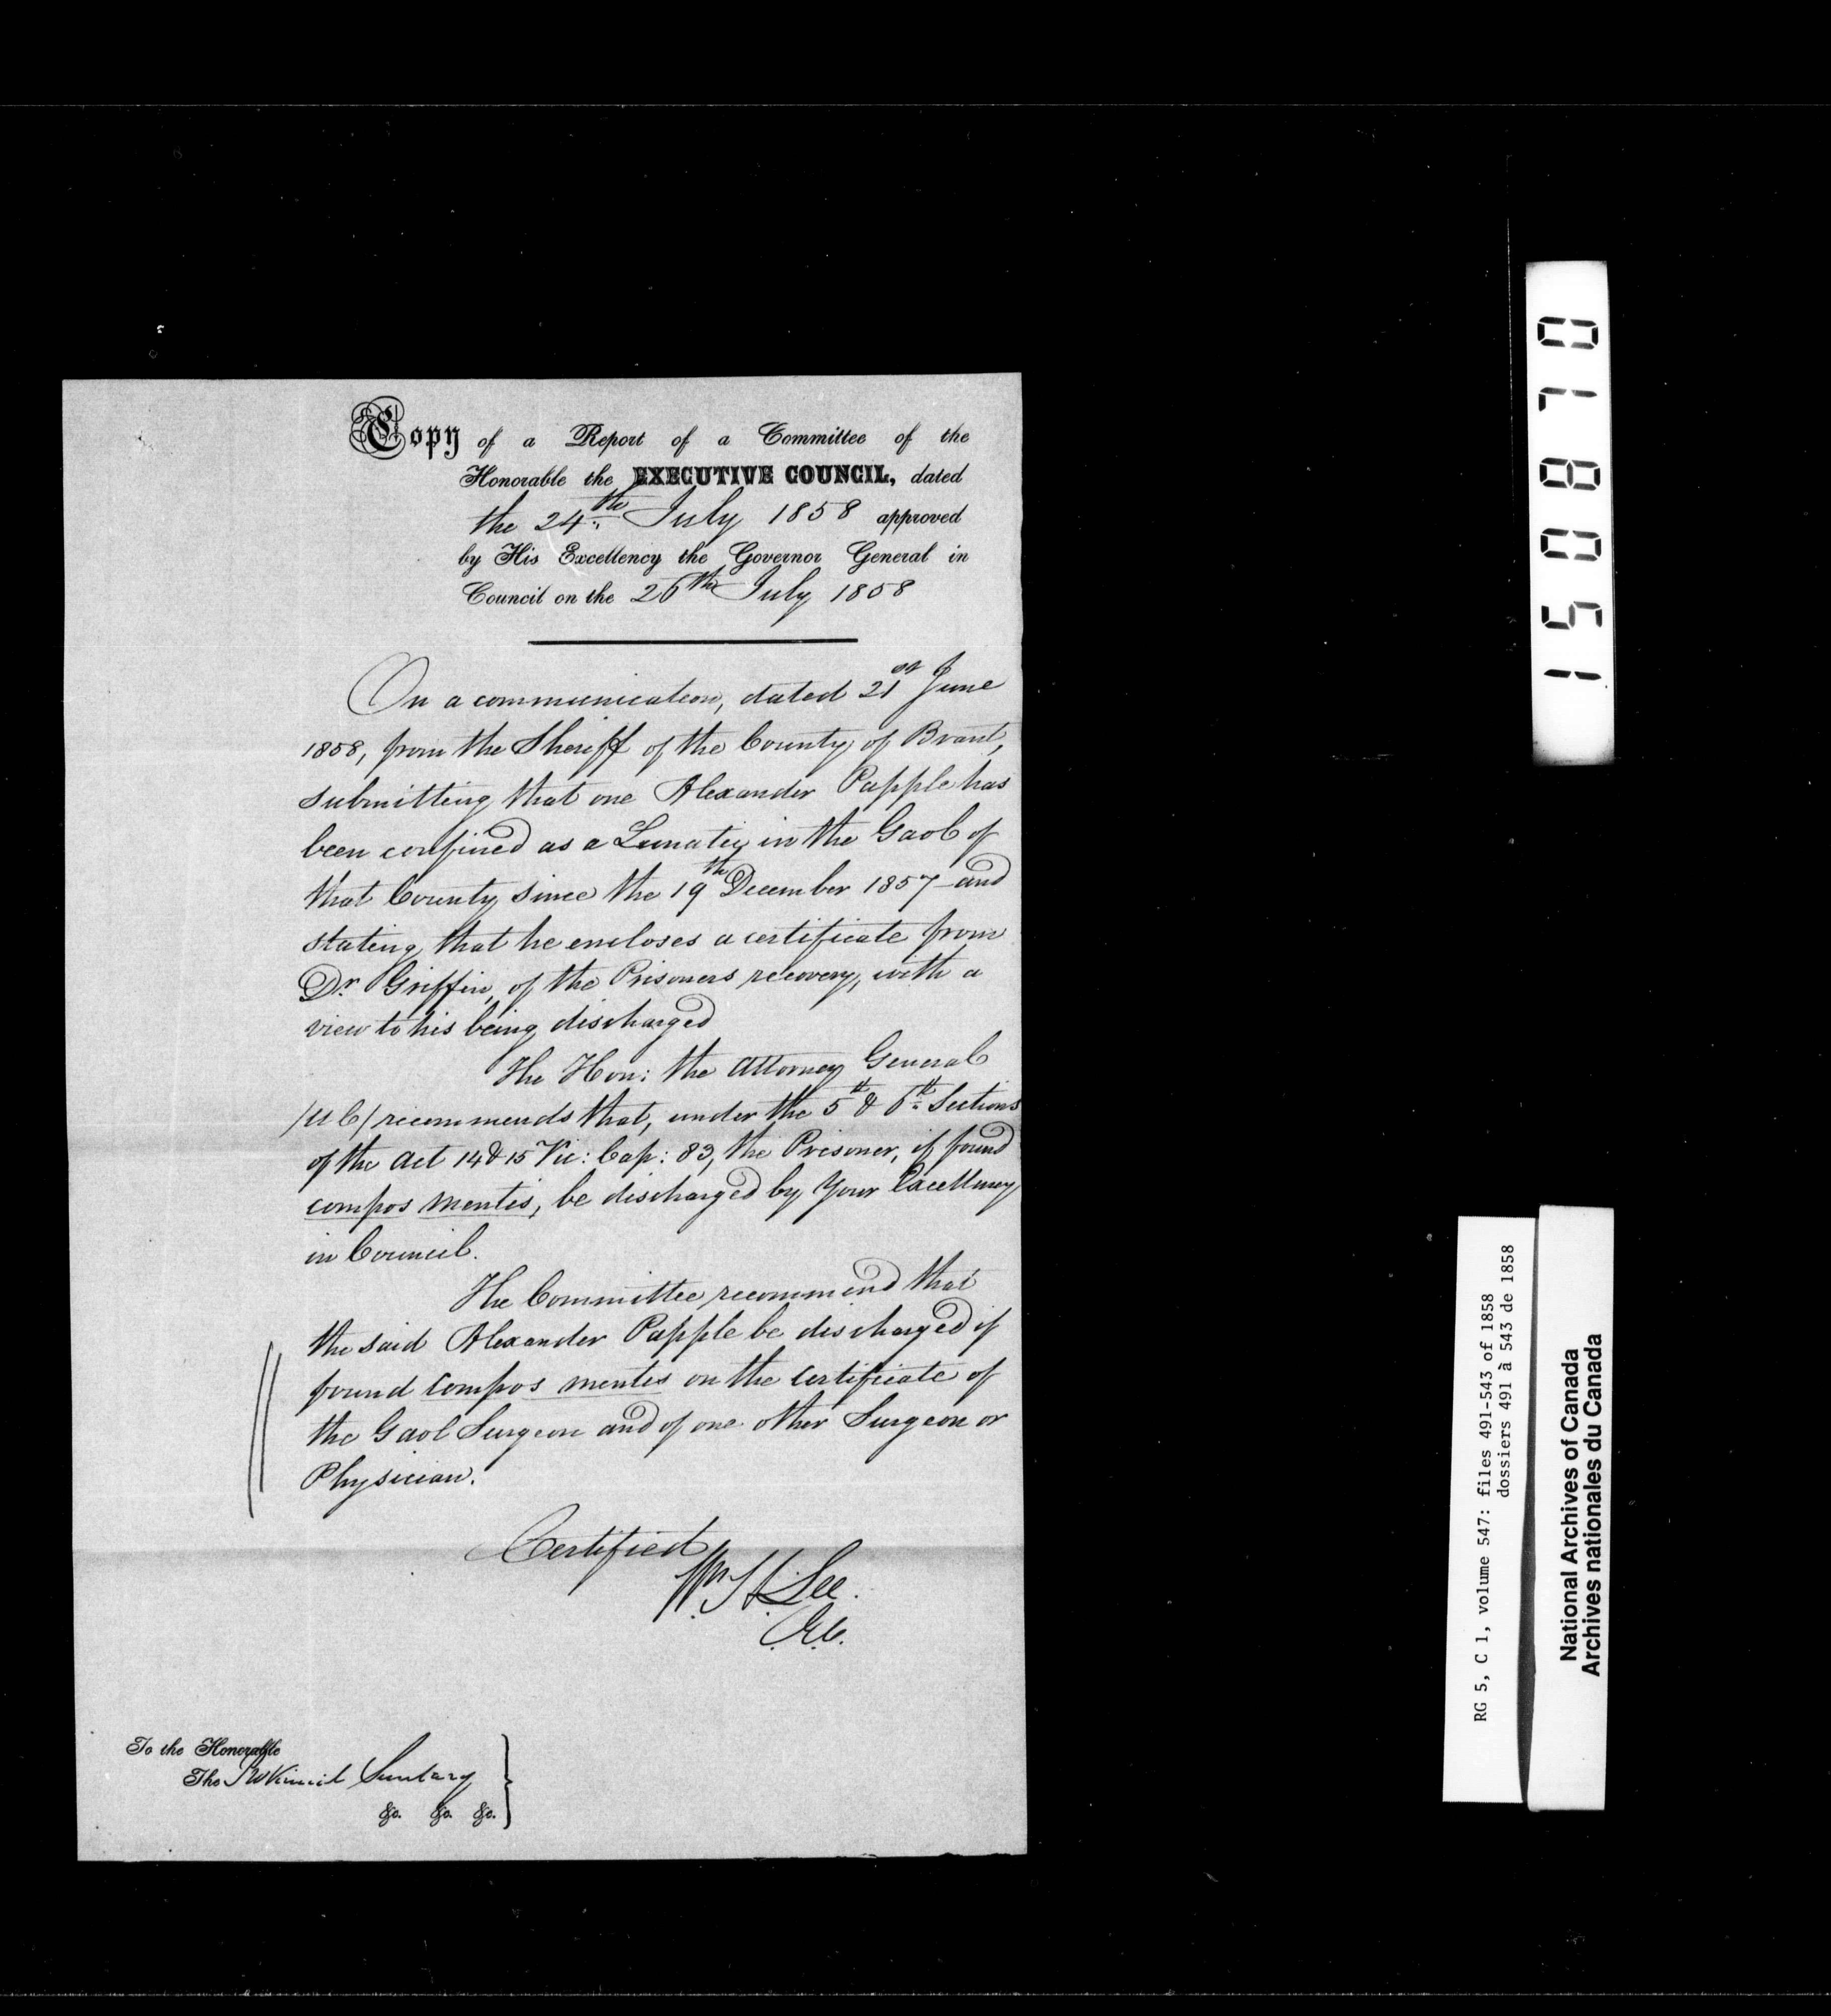 Copy of a Report of a Committee of the
Honorable the EXECUTIVE COUNCIL, dated
the 24th July 1858 approved
by His Excellency the Governor General in
Council on the 26th July 1858
On a communication, dated 21st June
1858, from the Sheriff of the County of Brant,
submitting that one Alexander Papple has
been confined as a Lunatic in the Gaol of
that County since the 19th December 1857 and
stating that he encloses a certificate from
Dr Griffin, of the Prisoners recovery, with a
view to his being discharged
The Hon: the Attorney General
/UC/ recommends that, under the 5th & 6th Sections
of the Act 14 & 15 Vic: Cap: 83, the Prisoner, if found
compos mentis, be discharged by Your Excellency
in Council.
The Committee recommend that
the said Alexander Papple be discharged if
found compos mentis on the certificate of
the Gaol Surgeon and of one other Surgeon or
Physician.
Certified
Wm H Lee.
C.E.C.
To the Honorable
The Provincial Secretary
&c. &c. &c.
150870
RG 5, C 1, volume 547: files 491-543 of 1858
dossiers 491 à 543 de 1858
National Archives of Canada
Archives nationales du Canada